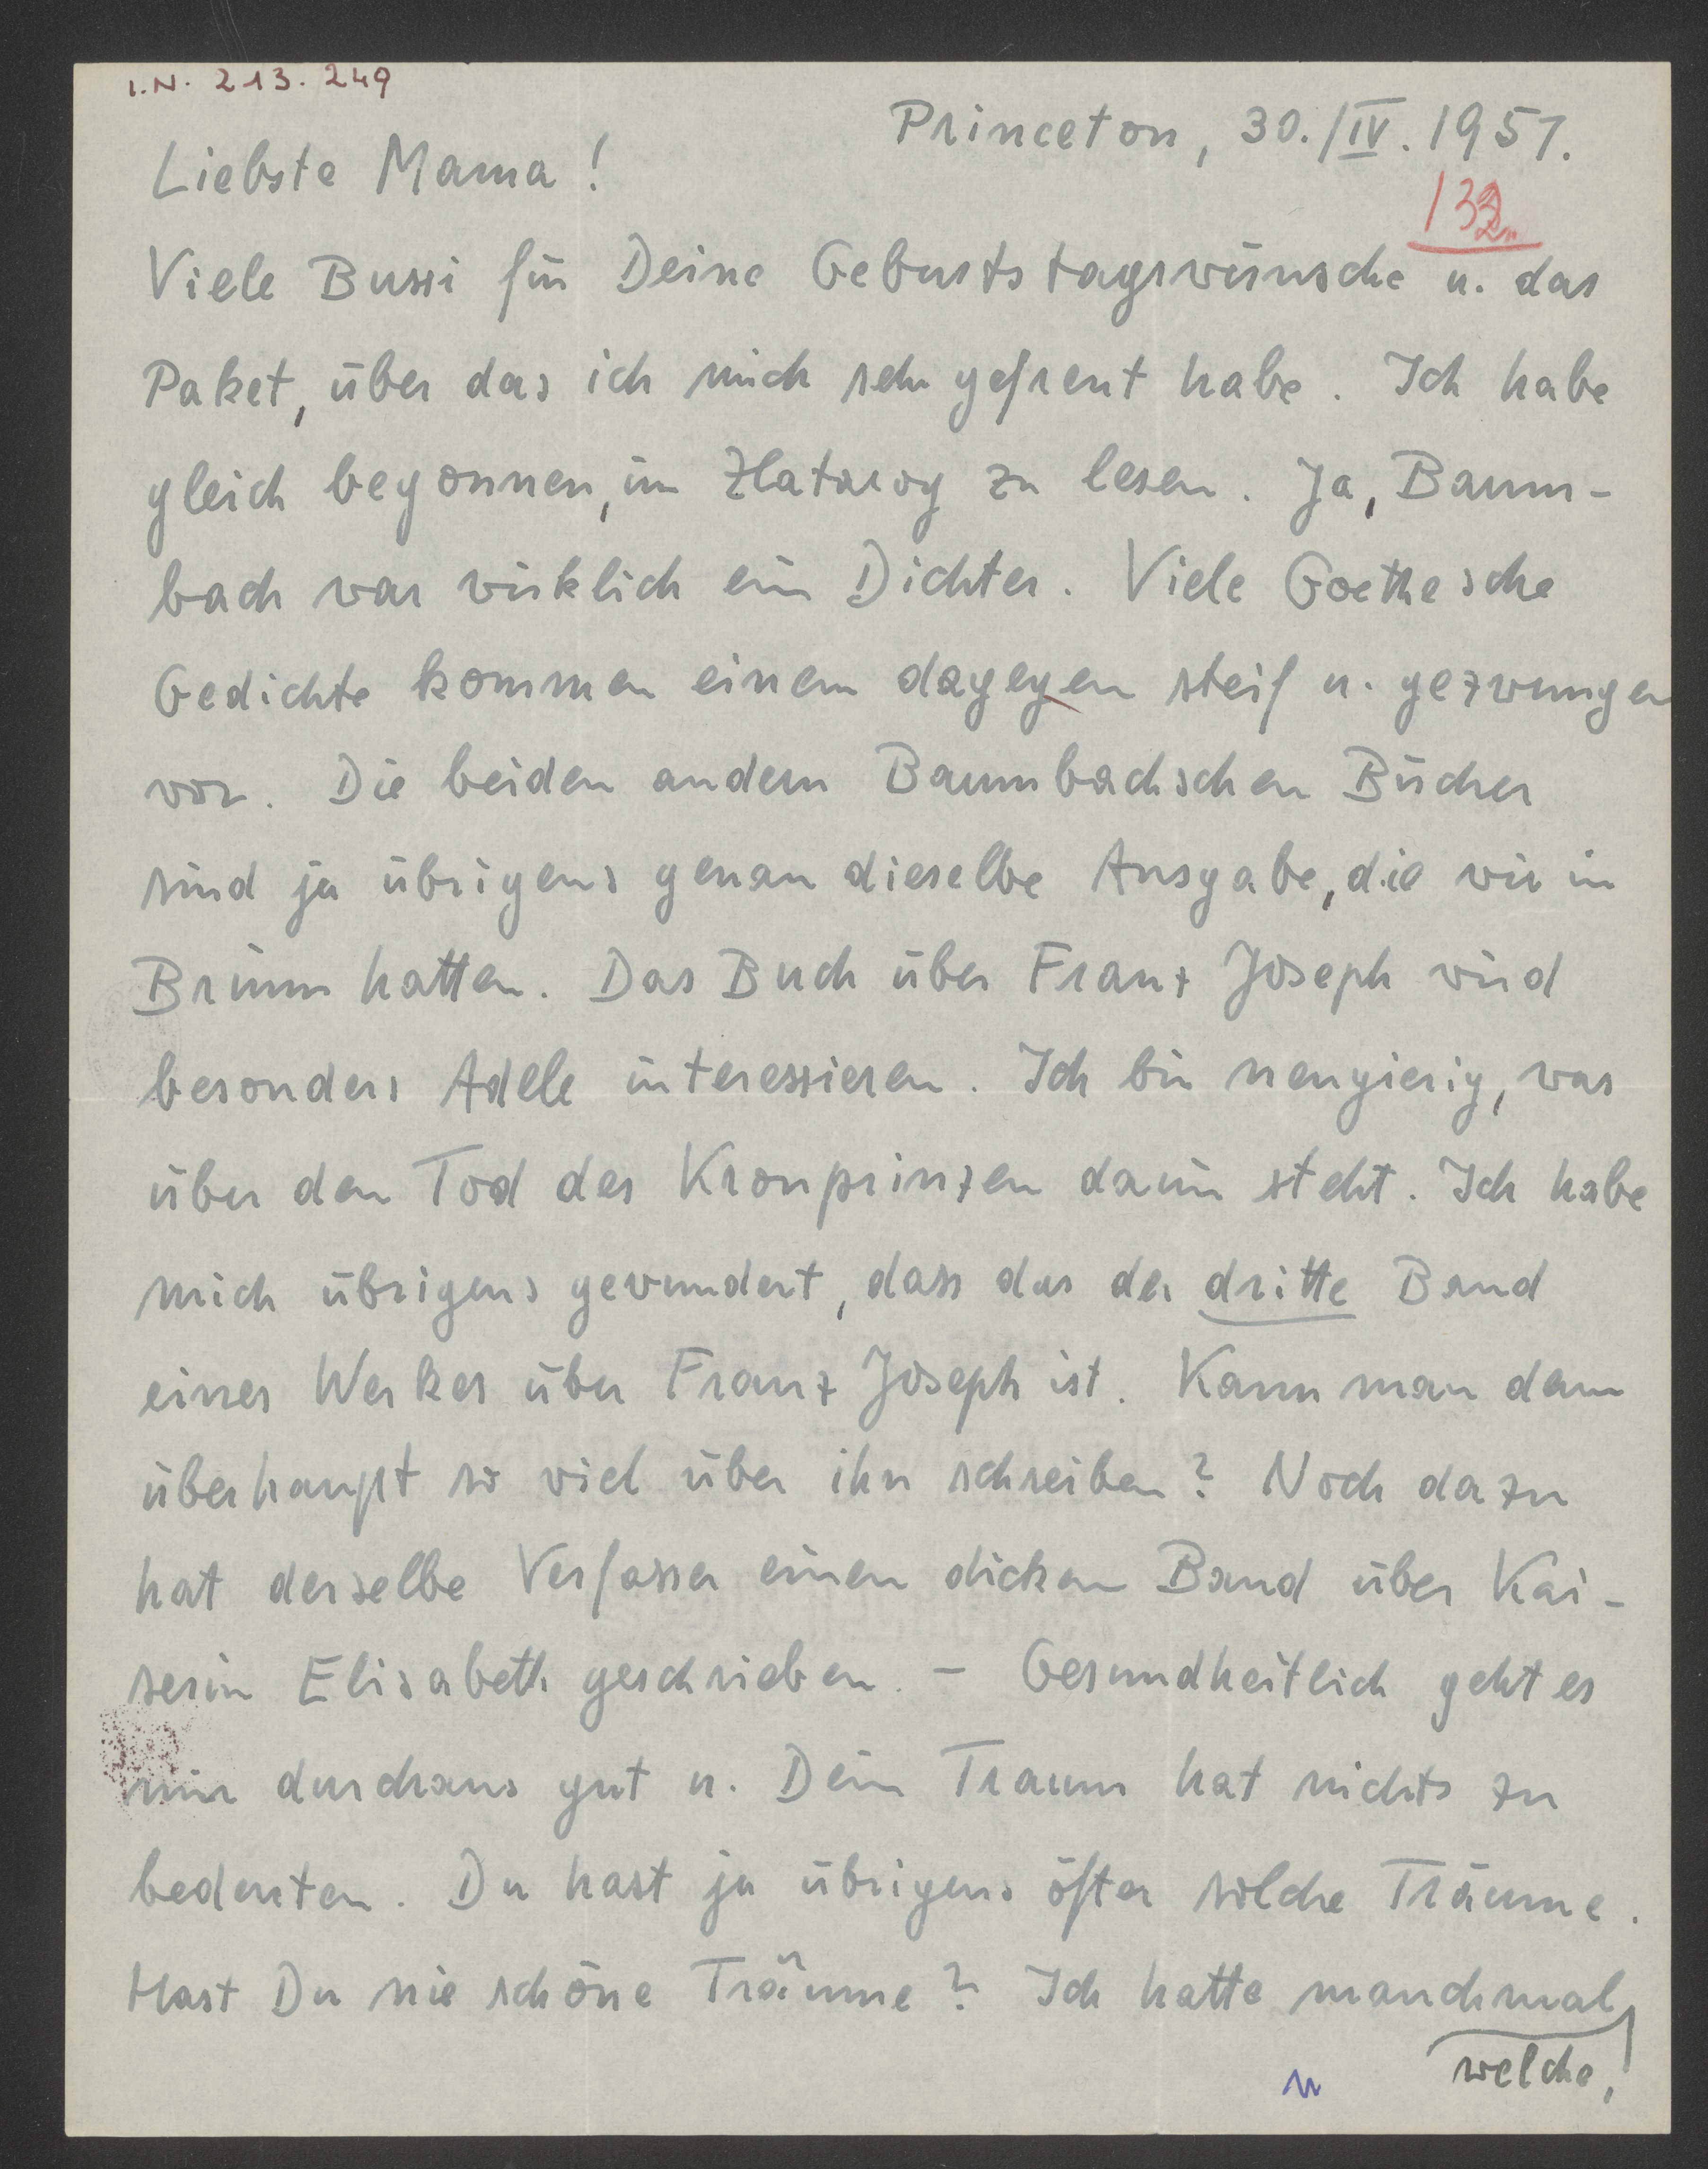 I.N. 213.249
Princeton, 30./IV. 1957.
Liebste Mama !
132.
Viele Bussi für Deine Geburtstagswünsche u. das
Paket, über das ich mich sehr gefreut habe. Ich habe
gleich begonnen, im Zlatorog zu lesen. Ja, Baum-
bach war wirklich ein Dichter. Viele Goethesche
Gedichte kommen einem dagegen steif u. gezwungen
vor. Die beiden andern Baumbachschen Bücher
sind ja übrigens genau dieselbe Ausgabe, die wir in
Brünn hatten. Das Buch über Franz Joseph wird
besonders Adele interessieren. Ich bin neugierig, was
über den Tod des Kronprinzen darin steht. Ich habe
mich übrigens gewundert, dass das der dritte Band
eines Werkes über Franz Joseph ist. Kann man denn
überhaupt so viel über ihn schreiben? Noch dazu
hat derselbe Verfasser einen dicken Band über Kai-
serin Elisabeth geschrieben. – Gesundheitlich geht es
mir durchaus gut u. Dein Traum hat nichts zu
bedeuten. Du hast ja übrigens öfter solche Träume.
Hast Du nie schöne Träume? Ich hatte manchmal
welche,